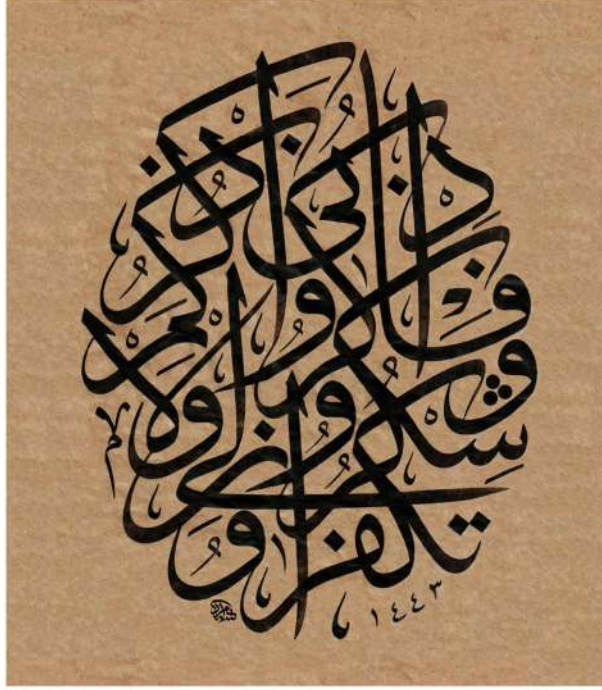 فاذكروني أذكركم واشكروا لي ولا تكفرون
١٤٤٣